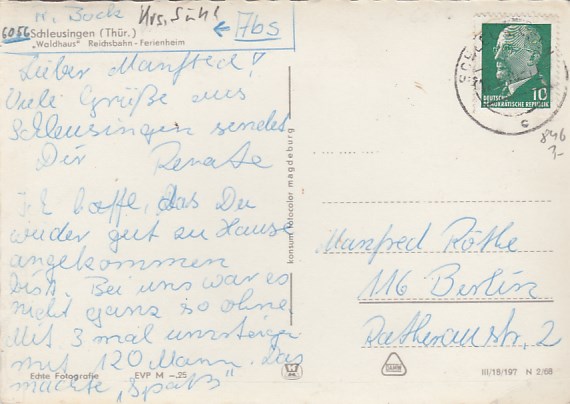 N. Bock
Krs. Suhl
6056 Schleusingen (Thür.)
← Abs
"Waldhaus" Reichsbahn-Ferienheim
Lieber Manfred!
Viele Grüße aus
Schleusingen sendet
Dir Renate
I. E hoffe, das Du
wieder gut zu Hause
angekommen
bist. Bei uns war es
nicht ganz so ohne
Mit 3 mal umsteigen
mit 120 Mann. Das
machte „Spaß"
Echte Fotografie EVP M -.25
konsum fotocolor magdeburg
DEUTSCHE
DEMOKRATISCHE REPUBLIK
10
c
846
Manfred Röthe
116 Berlin
Rathenaustr. 2
III/18/197 N 2/68